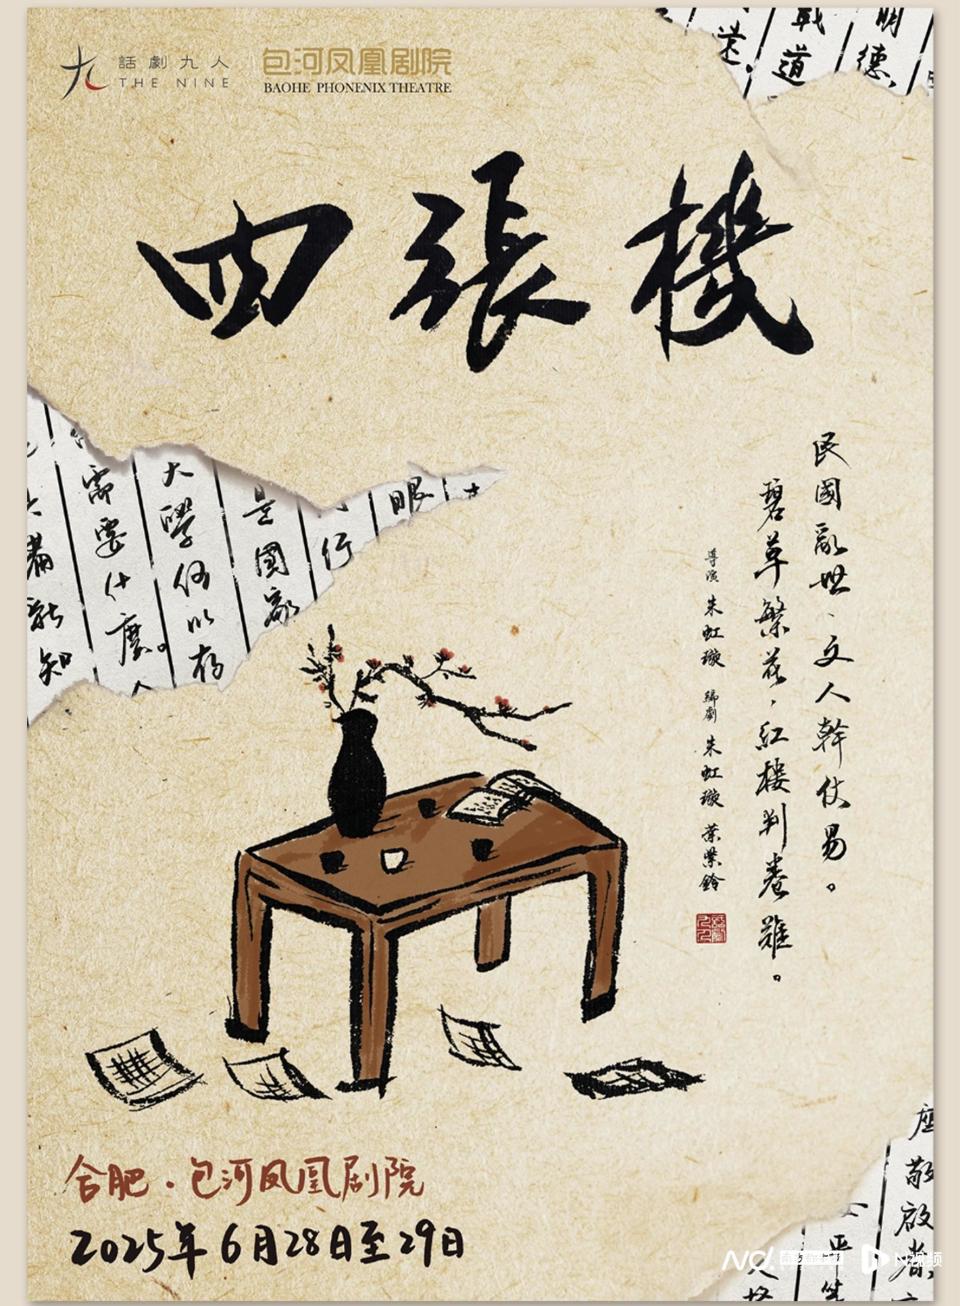 話劇九人
THE NINE
包河凤凰剧院
BAOHE PHONENIX THEATRE
四張機
戰道
明德,
需要什麼。
大學何以存
是國家
行
眼
滿
新知
民國亂世、文人幹仗易。
碧草繁花,紅樓判卷難。
導演 朱虹璇 編劇 朱虹璇 葉紫鈴
合肥·包河凤凰剧院
2025年6月28日至29日
座
敬啟者,
N视频